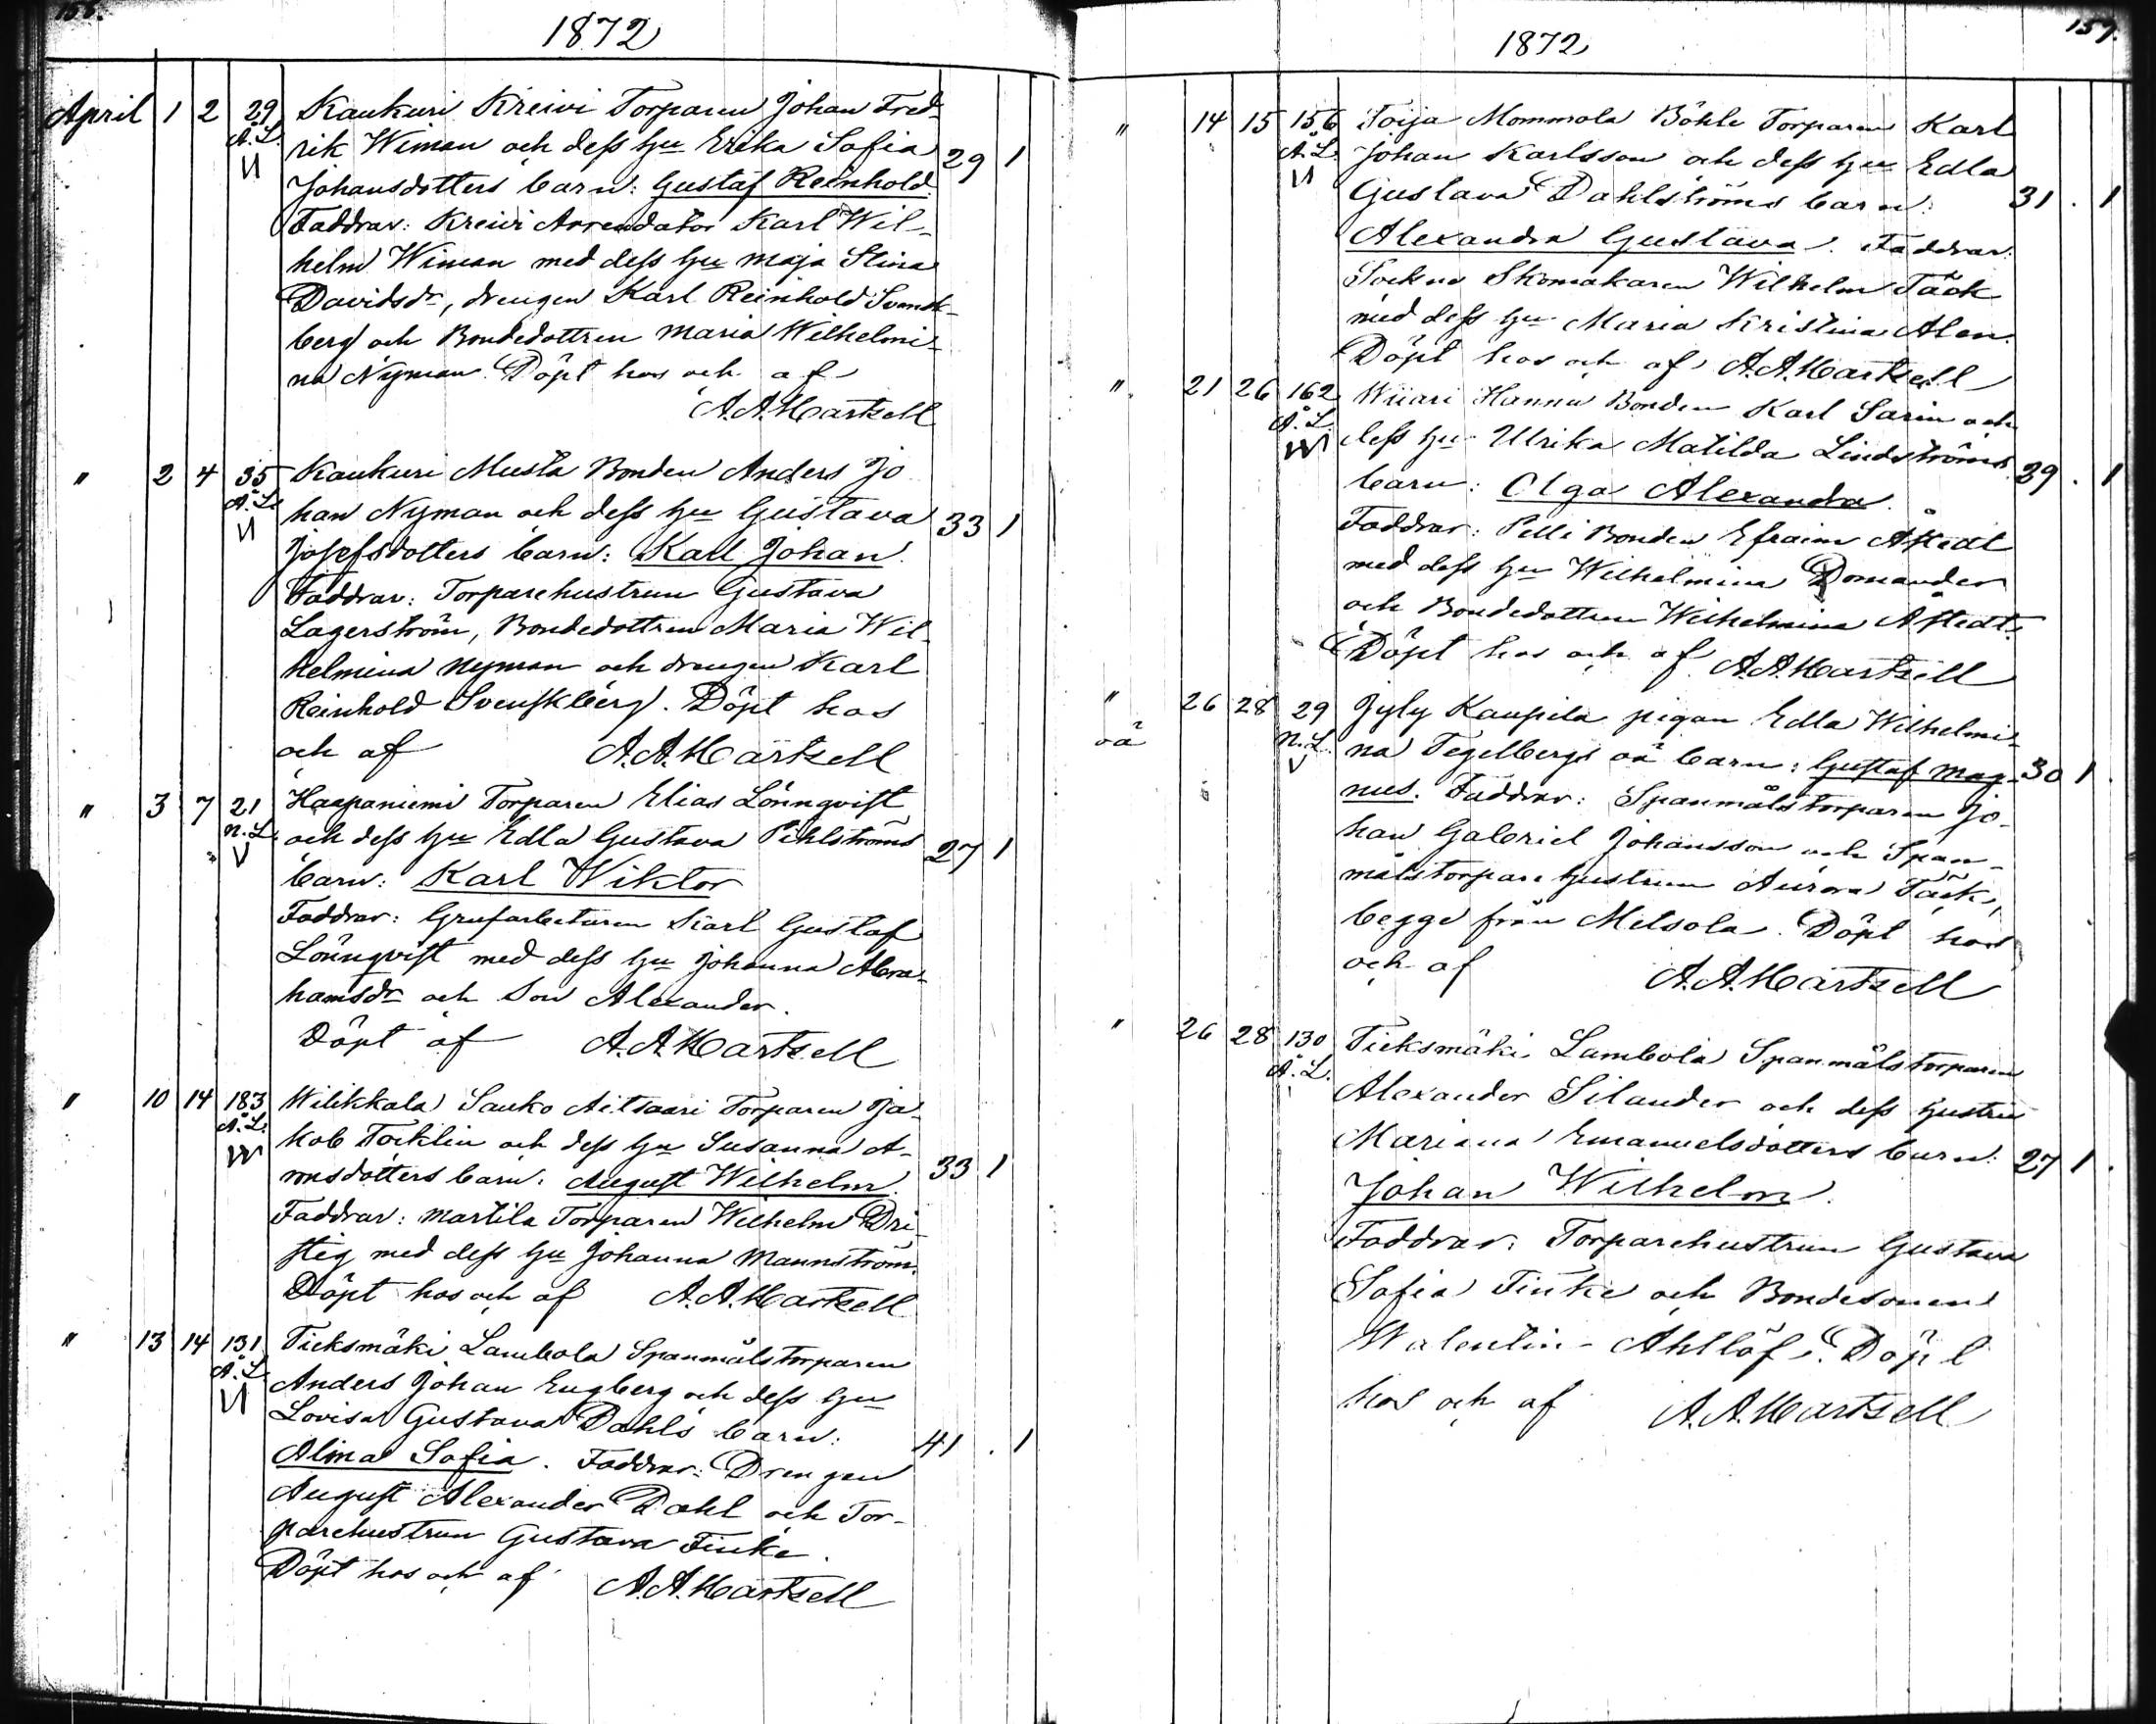 1872
April 1 2 29 Kaukuri Kreivi Torparen Johan Fred-
Å.L. rik Wiman och dess hu Erika Sofia 29 1
Johansdotters barn: Gustaf Reinhold.
Faddrar: Kreivi Arrendator Karl Wil-
helm Wiman med dess hu Maja Stina
Davidsdr, drengen Karl Reinhold Svensk-
berg och Bondedottren Maria Wilhelmi-
na Nyman. Döpt hos och af
A.A. Hartsell
" 2 4 35 Kaukuri Musta Bonden Anders Jo
Å.L. han Nyman och dess hu Gustava 33 1
Josefsdotters barn: Karl Johan.
Faddrar: Torparehustrun Gustava
Lagerström, Bondedottren Maria Wil-
helmina Nyman och drengen Karl
Reinhold Svenskberg. Döpt hos
och af A.A. Hartsell
" 3 7 21 Haapaniemi Torparen Elias Lönnqvist
N.L. och dess hu Edla Gustava Pihlströms 27 1
barn: Karl Wiktor
Faddrar: Grufarbetaren Karl Gustaf
Lönnqvist med dess hu Johanna Abra-
hamsdr och Son Alexander.
Döpt af A.A. Hartsell
" 10 14 183 Wilikkala Sauko Aitsaari Torparen Ja-
Å.L. kob Tocklin och dess hu Susanna A-
monsdotters barn: August Wilhelm. 33 1
Faddrar: Martila Torparen Wilhelm Dri-
stig med dess hu Johanna Mannström.
Döpt hos och af A.A. Hartsell
" 13 14 131 Tieksmäki Lambola Spanmålstorparen
Å.L. Anders Johan Engberg och dess hu
Lovisa Gustava Dahls barn:
Alma Sofia. Faddrar: Drengen 41 . 1
August Alexander Dahl och Tor-
parehustrun Gustava Finke.
Döpt hos och af A.A. Hartsell
159.
1872
" 14 15 156 Toija Mommola Böhle Torparen Karl
Å.L. Johan Karlsson och dess hu Edla
Gustava Dahlströms barn: 31 . 1
Alexandra Gustava. Faddrar:
Sockne Skomakaren Wilhelm Täck
med dess hu Maria Kristina Alen.
Döpt hos och af A.A. Hartsell
" 21 26 162 Wiiari Hannu Bonden Karl Sarin och
Å.L. dess hu Ulrika Matilda Lindströms
barn: Olga Alexandra. 39 . 1
Faddrar: Pelli Bonden Efraim Åstedt
med dess hu Wilhelmina Domander
och Bondedottren Wilhelmina Åstedt.
Döpt hos och af A.A. Hartsell
" 26 28 29 Jyly Kaupila pigan Edla Wilhelmi-
oä N.L. na Tegelbergs oä barn: Gustaf Mag- 30 1
nus. Faddrar: Spanmålstorparen Jo-
han Gabriel Johansson och Span-
målstorpare hustrun Aurora Täck,
begge från Metsola. Döpt hos
och af A.A. Hartsell
" 26 28 130 Tieksmäki Lambola Spanmålstorparen
Å.L. Alexander Silander och dess hustru
Mariana Emanuelsdotters barn: 27 1
Johan Wilhelm.
Faddrar: Torparehustrun Gustava
Sofia Finke och Bondesonen
Walentin Ahllöf. Döpt
hos och af A.A. Hartsell